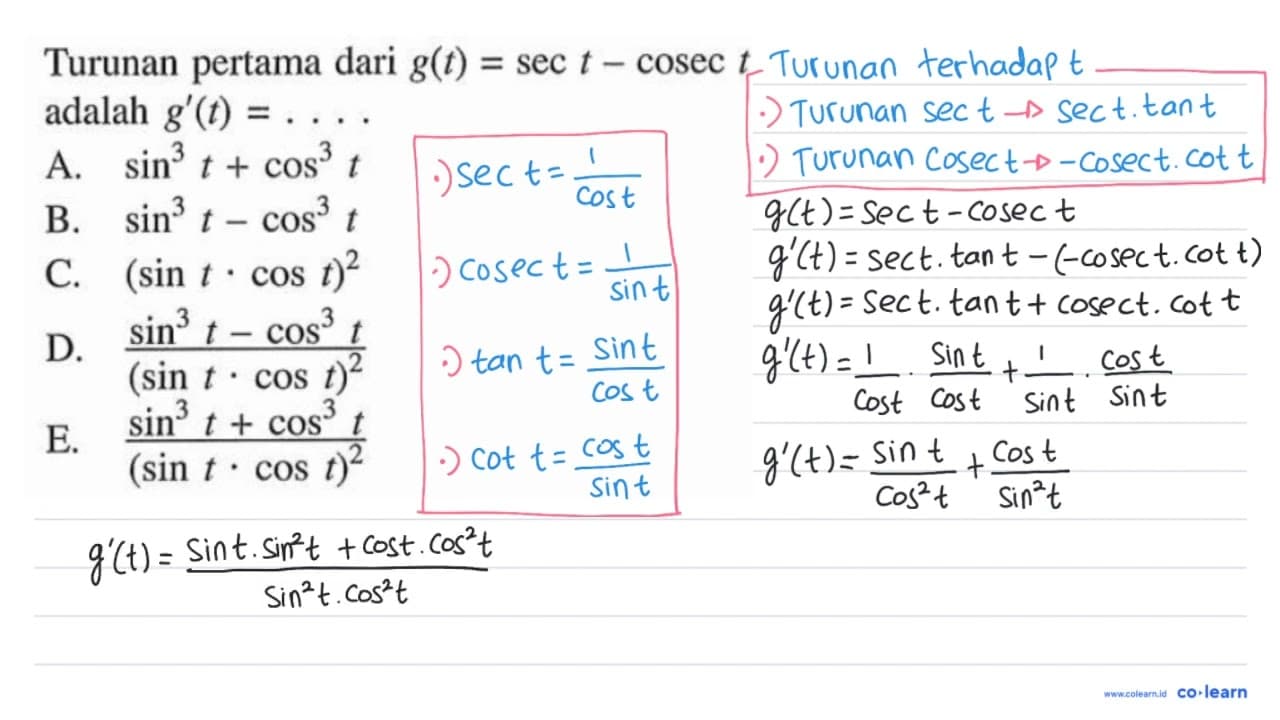 Turunan pertama dari g(t) = sec t − cosec t
adalah g'(t) = . . . .
A. sin³ t + cos³ t
B. sin³ t − cos³ t
C. (sin t · cos t)²
D. (sin³ t − cos³ t)/(sin t · cos t)²
E. (sin³ t + cos³ t)/(sin t · cos t)²
·) sec t = 1/cos t
·) cosec t = 1/sin t
·) tan t = sin t/cos t
·) cot t = cos t/sin t
Turunan terhadap t
·) Turunan sec t → sec t . tan t
·) Turunan cosec t → -cosec t . cot t
g(t) = sec t - cosec t
g'(t) = sec t . tan t - (-cosec t . cot t)
g'(t) = sec t . tan t + cosec t . cot t
g'(t) = 1/cos t . sin t/cos t + 1/sin t . cos t/sin t
g'(t) = sin t/cos² t + cos t/sin² t
g'(t) = (sin t . sin² t + cos t . cos² t)/(sin² t . cos² t)
www.colearn.id co·learn